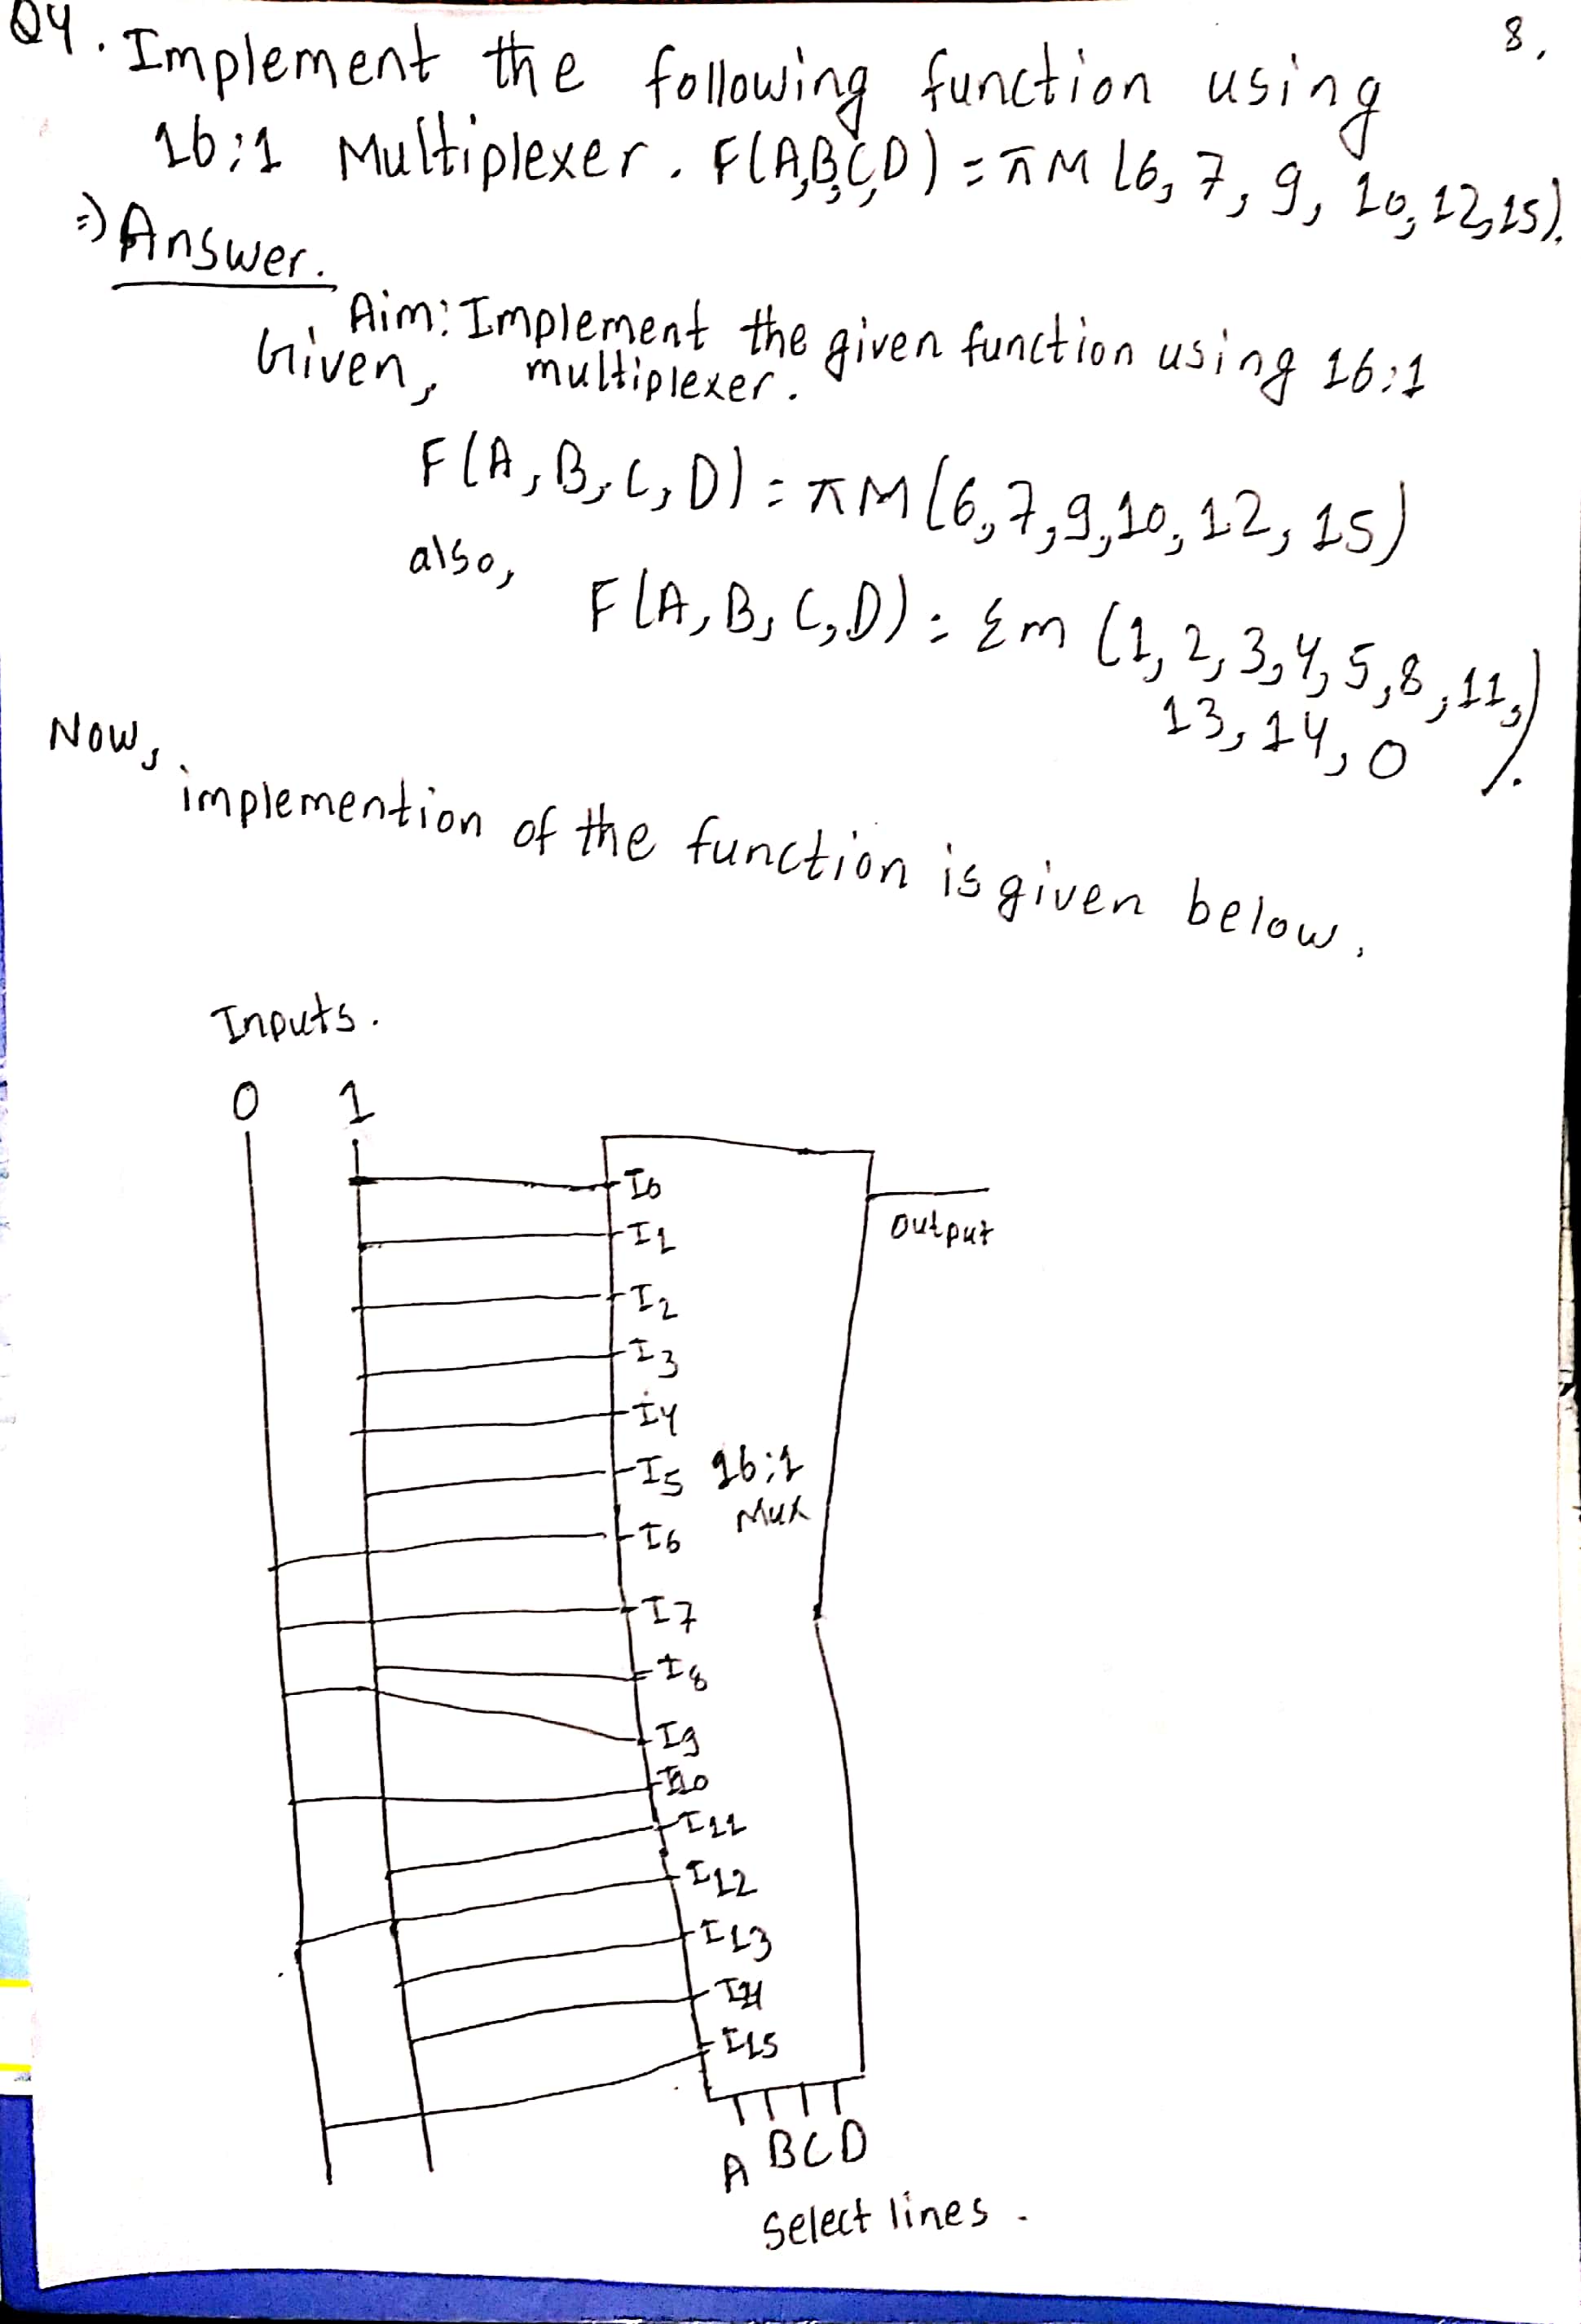 8.
Q4. Implement the following function using
16:1 Multiplexer. F(A,B,C,D) = πM (6, 7, 9, 10, 12, 15).
=) Answer.
Aim: Implement the given function using 16:1
multiplexer.
Given,
F(A, B, C, D) = πM (6, 7, 9, 10, 12, 15)
also,
F(A, B, C, D) = Σm (1, 2, 3, 4, 5, 8, 11,
13, 14, 0).
Now,
implemention of the function is given below.
Inputs.
0 1
I0
Output
I1
I2
I3
I4
I5 16:1
Mux
I6
I7
I8
I9
I10
I11
I12
I13
I14
I15
A B C D
Select lines.